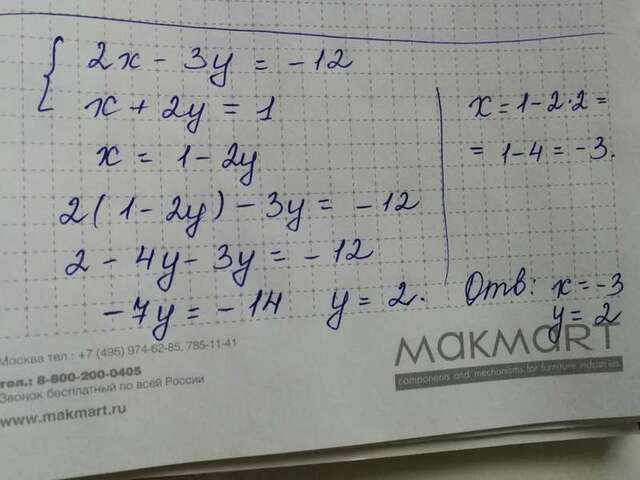 2x - 3y = -12
x + 2y = 1
x = 1 - 2y
2(1 - 2y) - 3y = -12
2 - 4y - 3y = -12
-7y = -14 y = 2.
x = 1 - 2·2 =
= 1 - 4 = -3.
Отв: x = -3
y = 2
Москва тел.: +7 (495) 974-62-85, 785-11-41
тел.: 8-800-200-0405
Звонок бесплатный по всей России
www.makmart.ru
MAKMART
components and mechanisms for furniture industries